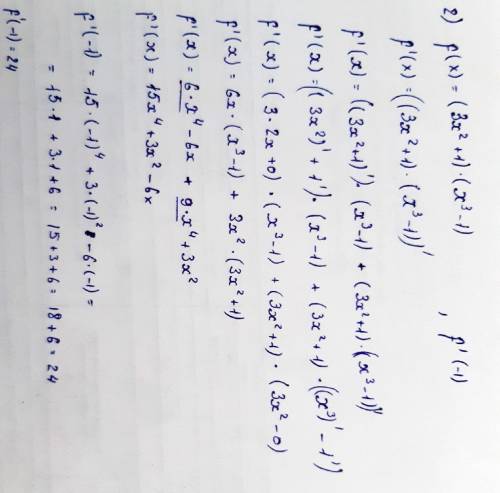 2) f(x) = (3x²+1)·(x³-1) , f'(-1)
f'(x) = ((3x²+1)·(x³-1))'
f'(x) = ((3x²+1)')·(x³-1) + (3x²+1)·(x³-1)'
f'(x) = ((3x²)' + 1')·(x³-1) + (3x²+1)·((x³)' - 1')
f'(x) = (3·2x+0)·(x³-1) + (3x²+1)·(3x²-0)
f'(x) = 6x·(x³-1) + 3x²·(3x²+1)
f'(x) = 6·x⁴-6x + 9·x⁴+3x²
f'(x) = 15x⁴+3x²-6x
f'(-1) = 15·(-1)⁴ + 3·(-1)² - 6·(-1) =
= 15·1 + 3·1+6 = 15+3+6 = 18+6 = 24
f'(-1) = 24